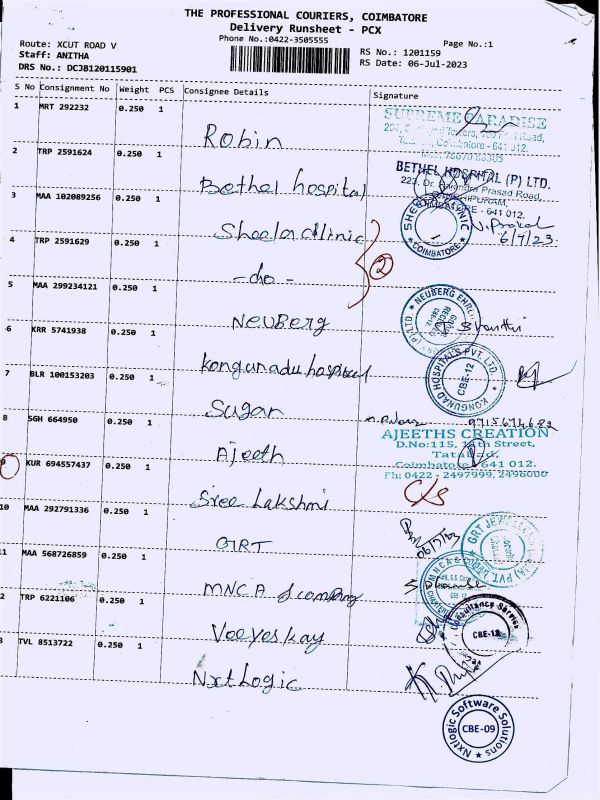 THE PROFESSIONAL COURIERS, COIMBATORE
Delivery Runsheet - PCX
Phone No.:0422-3505555
Page No.:1
Route: XCUT ROAD V
Staff: ANITHA
DRS No.: DCJB120115901
RS No.: 1201159
RS Date: 06-Jul-2023
S No Consignment No Weight PCS Consignee Details Signature
1 MRT 292232 0.250 1 Robin
SUPREME PARADISE
Coimbatore - 641 012.
2 TRP 2591624 0.250 1 Bethel hospital
BETHEL HOSPITAL (P) LTD.
Prasad Road,
641 012.
3 MAA 102089256 0.250 1 Sheela clinic
COIMBATORE
6/7/23
4 TRP 2591629 0.250 1 -do-
2
5 MAA 299234121 0.250 1 NEUBERG
NEUBERG
Shanthi
6 KRR 5741938 0.250 1 Kongunadu hospital
KONGUNAD HOSPITALS PVT. LTD.
CBE-12
7 BLR 100153203 0.250 1 Sugan
8 SGH 664950 0.250 1 Ajeeth
AJEETHS CREATION
D.No:115, Street,
Tatabad,
Coimbatore - 641 012.
Ph: 0422 - 2497999,
9 KUR 694557437 0.250 1 Sree Lakshmi
C/S
10 MAA 292791336 0.250 1 GRT
06/7/23
GRT
11 MAA 568726859 0.250 1 MNCA & company
MNCA &
2 TRP 6221106 0.250 1 Veeyeskay
Consultancy Service
CBE-12
3 TVL 8513722 0.250 1 Nxtlogic
Nxtlogic Software Solutions
CBE-09